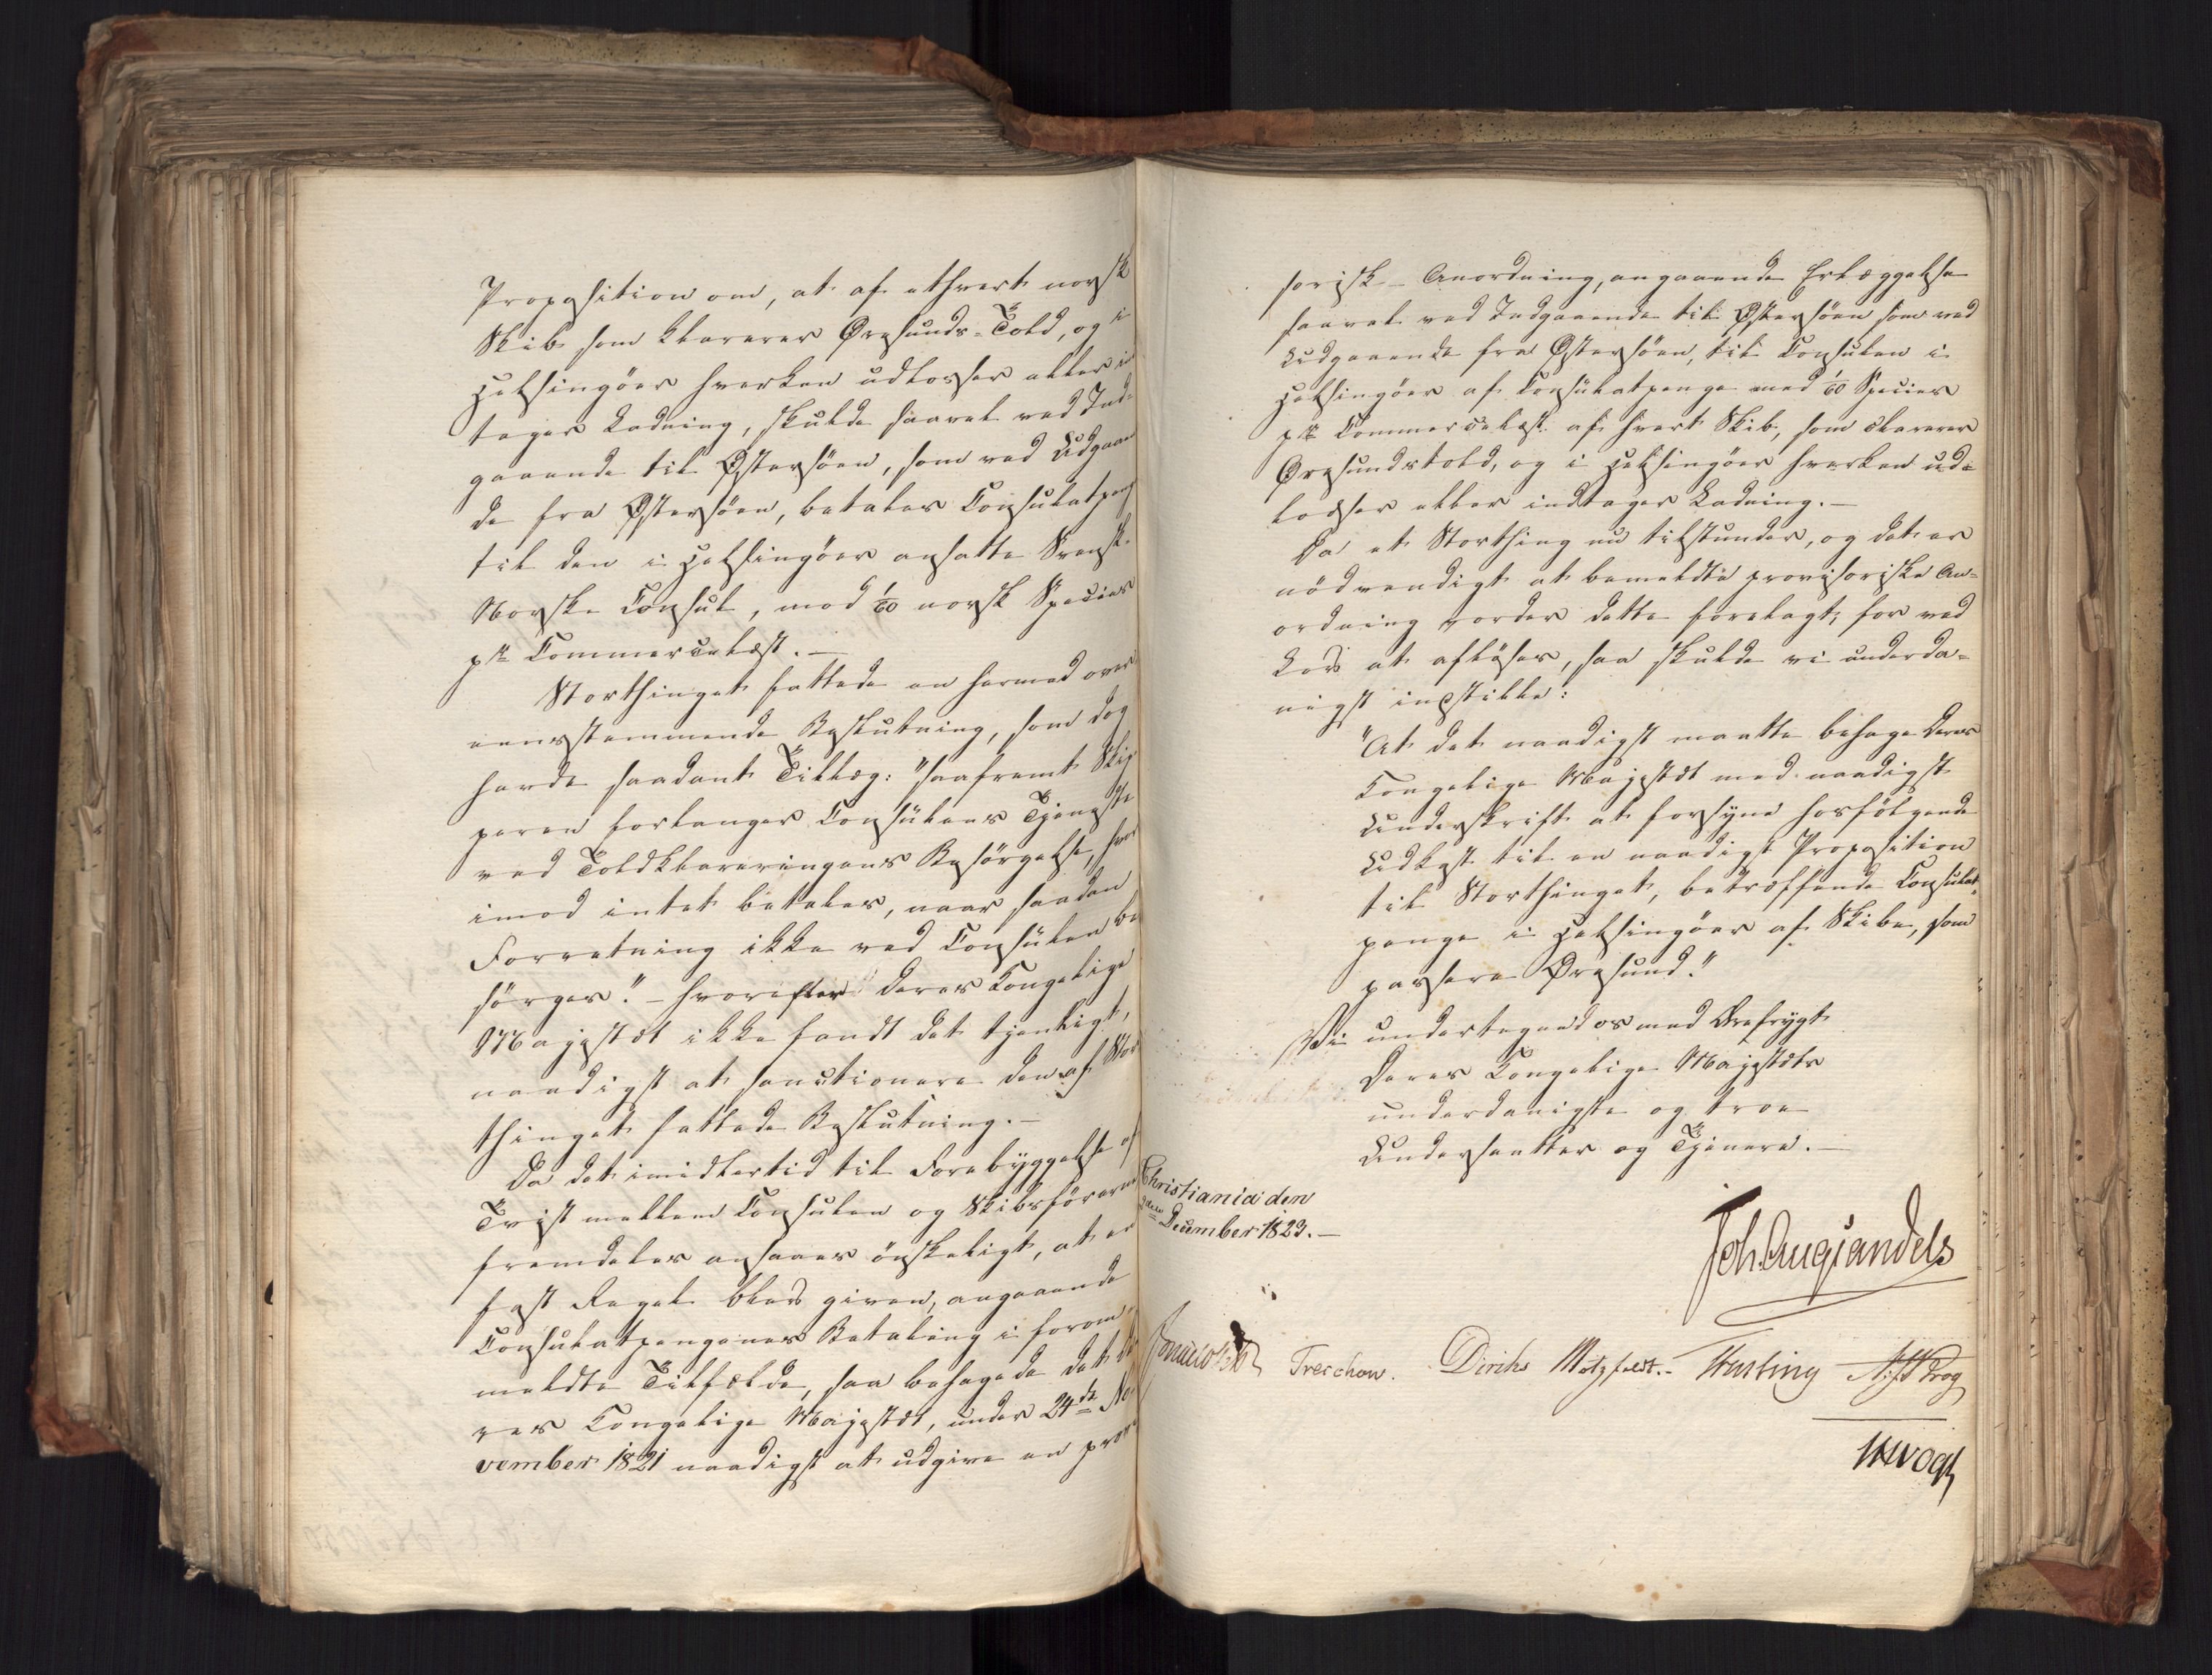 Proposition om, at af ethvert norsk
Skib som klarerer Öresunds-Told, og i
Helsingöer hverken udlosser eller in
tager Ladning, skulde saavel ved Ind-
gaaende til Östersöen, som ved Udgaaen
de fra Östersöen, betales Consulatpeng
til den i Helsingöer ansatte Svensk-
Norske Consul, med 1/60 norsk Species
pr Commercelæst. —
Storthinget fattede en hermed over
eensstemmende Beslutning, som dog
havde saadant Tillæg: "saafremt Skip
peren forlanger Consulens Tjeneste
ved Toldklareringens Besörgelse, hvor
imod intet betales, naar saadan
Forretning ikke ved Consulen be
sörges." – hvorefter Deres Kongelige
Majestæt ikke fandt det tjenligt,
naadigst at sanctionere den af Stor
thinget fattede Beslutning. —
Da det imidlertid til Forebyggelse af
Tvist mellem Consulen og Skibsförerne
fremdeles ansaaes önskeligt, at en
fast Regel blev given, angaaende
Consulatpengenes Betaling i forom
meldte Tilfælde, saa behagede det De
res Kongelige Majestæt, under 24de No
vember 1821 naadigst at udgive en provi
sorisk Anordning, angaaende Erlæggelse
saavel ved Indgaaende til Östersöen som ved
Udgaaende fra Östersöen, til Consulen i
Helsingöer af Consulatpenge med 1/60 Species
pr Commercelæst af hvert Skib, som clarerer
Öresundstold, og i Helsingöer hverken ud-
losser eller indtager Ladning. —
Da et Storthing nu tilstunder, og det er
nödvendigt at bemeldte provisoriske An-
ordning vorder dette forelagt, for ved
Lov at aflöses, saa skulde vi underda-
nigst indstille:
"At det naadigst maatte behage Deres
Kongelige Majestæt med naadigst
Underskrift at forsyne hosfölgende
Udkast til en naadigst Proposition
til Storthinget, betræffende Consulat-
penge i Helsingöer af Skibe, som
passere Öresund."
Vi undertegne os med Ærefrygt
Deres Kongelige Majestæts
underdanigste og troe
Undersaatter og Tjenere. —
Christiania den
December 1823. —
Joh. Aug. Sandels
Sommerhielm Treschow. Diriks Motzfeldt. Fasting A. S. Krog
Vogt